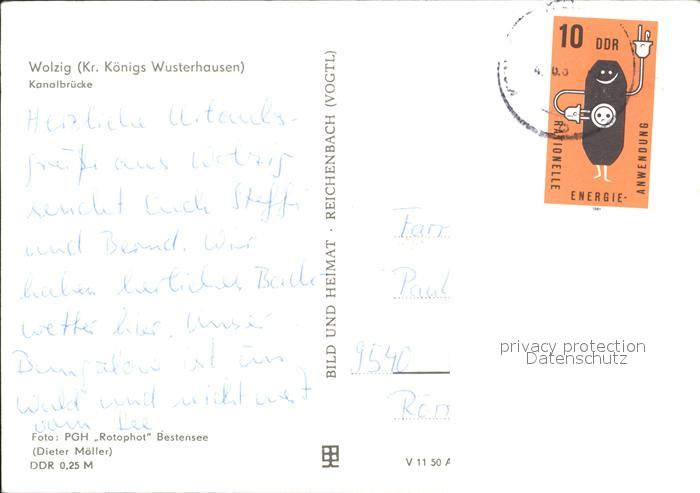 Wolzig (Kr. Königs Wusterhausen)
Kanalbrücke
Herzliche Urlaubs-
grüße aus Wolzig
sendet Euch Steffi
und Bernd. Wir
haben herrliches Bade-
wetter hier. Unser
Bungalow ist im
Wald und nicht weit
vom See
Foto: PGH „Rotophot" Bestensee
(Dieter Möller)
DDR 0,25 M
BILD UND HEIMAT · REICHENBACH (VOGTL)
V 11 50 A
10 DDR
RATIONELLE
ENERGIE-
ANWENDUNG
1981
Fam
Paul
9540
privacy protection
Datenschutz